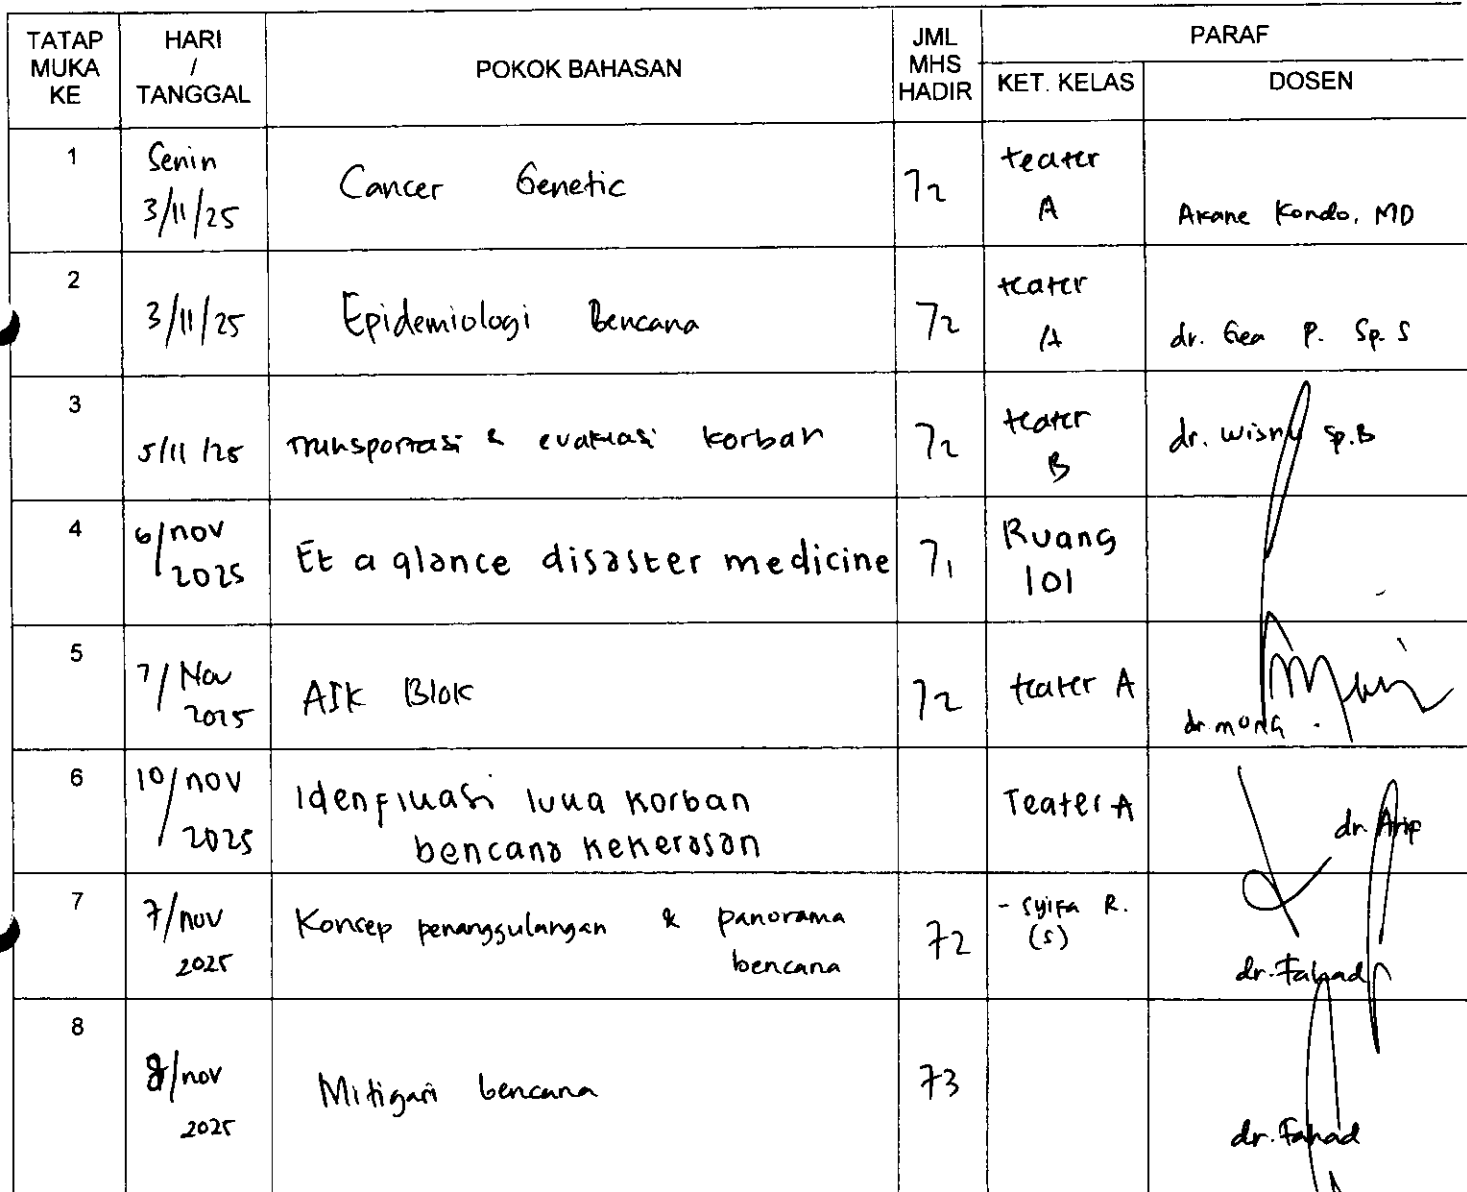 TATAP MUKA KE
HARI / TANGGAL
POKOK BAHASAN
JML MHS HADIR
PARAF
KET. KELAS
DOSEN
1
Senin
3/11/25
Cancer Genetic
72
teater
A
Akane Kondo, MD
2
3/11/25
Epidemiologi Bencana
72
teater
A
dr. Gea P. Sp. S
3
5/11/25
Transportasi & evakuasi korban
72
teater
B
dr. Wisnu Sp.B
4
6/nov
2025
Et a glance disaster medicine
71
Ruang
101
5
7/Nov
2025
AIK Blok
72
teater A
dr. mona
6
10/nov
2025
Idenfikasi luka korban
bencana kekerasan
Teater A
dr. Arip
7
7/nov
2025
Konsep penanggulangan & panorama
bencana
72
- Syifa R.
(S)
dr. Fahad
8
8/nov
2025
Mitigasi bencana
73
dr. Fahad